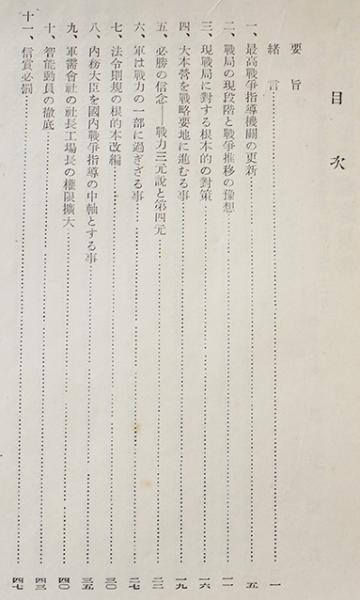 目次
要旨
緒言 一
一、最高戰爭指導機關の更新 五
二、戰局の現段階と戰爭推移の豫想 一一
三、現戰局に對する根本的の對策 一六
四、大本營を戰略要地に進むる事 一九
五、必勝の信念――戰力三元說と第四元 二二
六、軍は戰力の一部に過ぎざる事 二七
七、法令則規の根的本改編 三〇
八、內務大臣を國內戰爭指導の中軸とする事 三五
九、軍需會社の社長工場長の權限擴大 四〇
十、智能動員の徹底 四三
十一、信賞必罰 四七